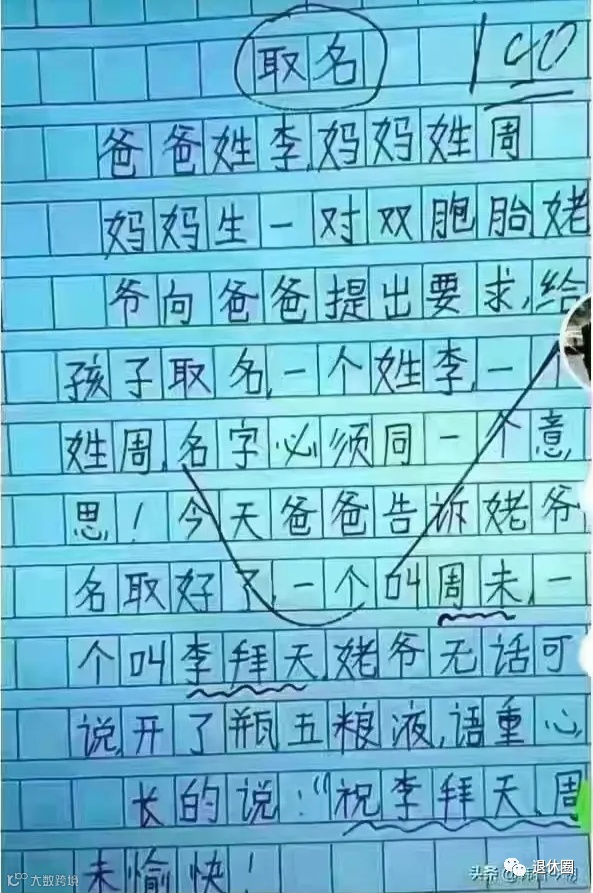 取名 100
爸爸姓李,妈妈姓周
妈妈生一对双胞胎姥
爷向爸爸提出要求,给
孩子取名,一个姓李,一个
姓周,名字必须同一个意
思!今天爸爸告诉姥爷
名取好了,一个叫周未,一
个叫李拜天,姥爷无话可
说,开了瓶五粮液,语重心
长的说:“祝李拜天、周
未愉快!
大数跨境
头条
退休圈